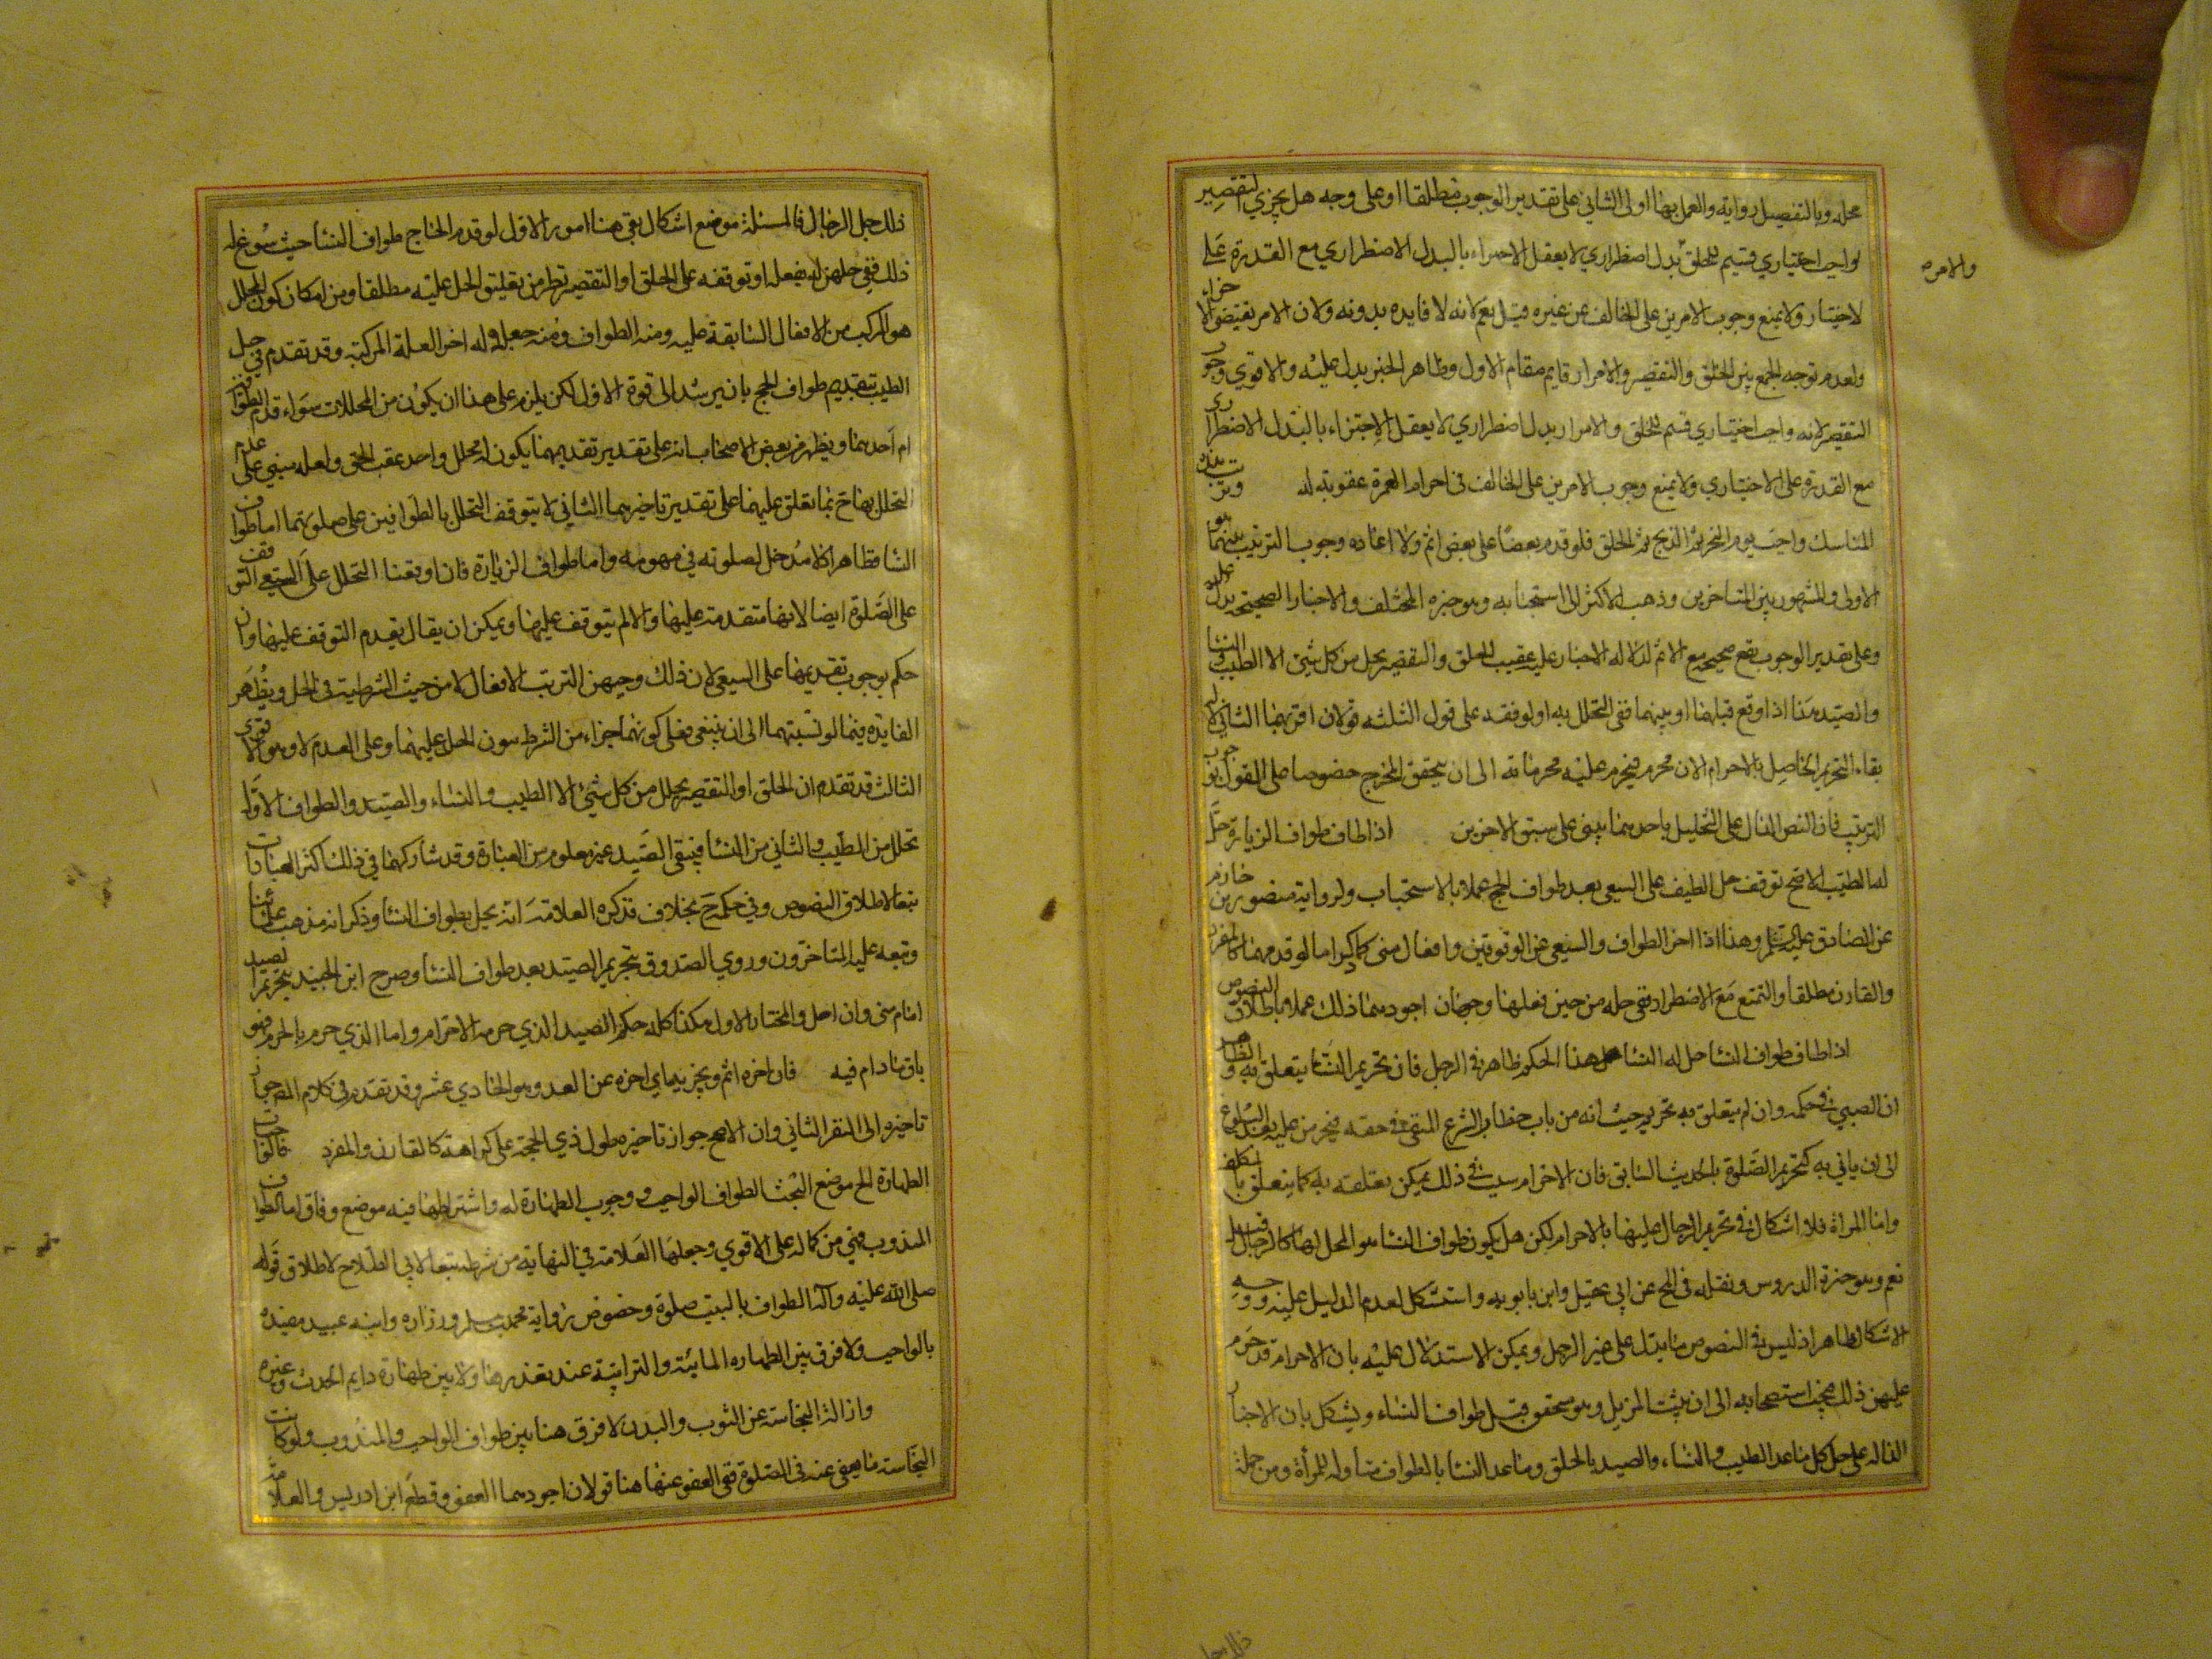 محله وبالتفصيل رواية والعمل بها اولى الثاني على تقدير الوجوب مطلقا او على وجه هل يجزي التقصير
لواجب اختياري قسيم للحلق بدل اضطراري لا يعقل الاجزاء بالبدل الاضطراري مع القدرة على
والامرار
لاختيار ولا يمنع وجوب الامرين على الحالف عن غيره قيل نعم لانه لا فايده بدونه ولان الامر يقتضي الاجزاء
ولعدم توجه الجمع بين الحلق والتقصير والامرار قايم مقام الاول وظاهر الخبر يدل عليه والاقوى وجوب
التقصير لانه واجب اختياري قسيم للحلق والامرار بدل اضطراري لا يعقل الاجتزاء بالبدل الاضطراري
مع القدرة على الاختياري ولا يمنع وجوب الامرين على الحالف في احرام العمرة عقوبة له وترتيب هذه
المناسك واجب يوم النحر ثم الذبح ثم الحلق فلو قدم بعضا على بعض اثم ولا اعاده وجوب الترتيب بينهما هو
الاولى والمشهور بين المتاخرين وذهب الاكثر الى استحبابه وهو خيره المختلف والاخبار الصحيحه تدل عليه
وعلى تقدير الوجوب يقع صحيحه مع الاثم لدلاله الاخبار عليه عقيب الحلق والتقصير يحل من كل شئ الا الطيب والنسا
والصيد هذا اذا وقع قبلهما او بينهما ففي التحلل به او لوفقد على قول الثلثه قولان اقربهما الثاني لان
بقاء التحريم الحاصل بالاحرام الان محرم فيحرم عليه محرماته الى ان يتحقق المخرج خصوصا على القول بوجوب
الترتيب فان النص الدال على التحليل باحدهما يبنى على سبق الاخرين اذا طاف طواف الزيارة حل
له الطيب الاصح توقف حل الطيب على السعي بعد طواف الحج عملا بالاستحباب ولرواية منصور بن حازم
عن الصادق عليه السلم وهذا اذا اخر الطواف والسعي عن الوقوفين وافعال منى كما ذكر اما لو قدمهما كالمفرد
والقارن مطلقا والتمتع مع الاضطرار ففي حله من حين فعلهما وجهان اجودهما ذلك عملا باطلاق النصوص
اذا طاف طواف النسا حل له النسا هذا الحكم ظاهر في الرجل فان تحريم النسا يتعلق به والظاهر
ان الصبي في حكمه وان لم يتعلق به تحريم حيث انه من باب خطاب الشرع المنتفي في حقه فيحرمن عليه بعد البلوغ
الى ان ياتي به كتحريم الصلوة بالحدث السابق فان الاحرام سبب في ذلك يمكن تعلقه به كما يتعلق بالمكلف
واما المراة فلا اشكال في تحريم الرجال عليها بالاحرام لكن هل يكون طواف النسا هو المحل لها كالرجال قيل
نعم وهو خيرة الدروس ونقله في المخ عن ابي عقيل وابن بابويه واستشكل لعدم الدليل عليه ووجه
الاشكال ظاهر اذ ليس في النصوص ما يدل على غير الرجل ويمكن الاستدلال عليه بان الاحرام قد حرم
عليهن ذلك فيجب استصحابه الى ان يثبت المزيل وهو متحقق قبل طواف النساء ويشكل بان الاخبار
الداله على حل كل ما عدا الطيب والنساء والصيد بالحلق وما عدا النسا بالطواف متناوله للمرأة ومن جملة
ذلك حل
ذلك حل الرجال فالمسئلة موضع اشكال بقي هنا امور الاول لو قدم الحاج طواف النسا حيث سوغ له
ذلك ففي حلهن له بفعله او توقفه على الحلق او التقصير نظر من تعليق الحل عليه مطلقا ومن امكان كون المحلل
هو المركب من الافعال السابقة عليه ومنه الطواف ومنه جعله اخر العلة المركبة وقد تقدم في حل
الطيب بتقديم طواف الحج بان يرشد الى قوة الاول لكن يلزم على هذا ان يكون من المحللات سواء قدم الطوافين
ام احدهما ويظهر من بعض الاصحاب انه على تقدير تقديمهما يكون له محلل واحد عقيب الحلق ولعله مبني على عدم
التحلل بهما ح بما تعلق عليهما على تقدير تاخيرهما الثاني لا يتوقف التحلل بالطوافين على صلوتهما اما طواف
النسا فظاهر اذ لا مدخل لصلوته في مفهومه واما طواف الزيارة فان اوقفنا التحلل على السعي التوقف
على الصلوة ايضا لانها متقدمة عليها والا لم يتوقف عليها ويمكن ان يقال بعدم التوقف عليها وان
حكم بوجوب تقديمها على السعي لان ذلك وجيهن الترتب الافعال لا من حيث الشرطية في الحل ويظهر
الفايده فيما لو نسيتهما الى ان ينفى فعلى كونهما جزاء من الشرط سون الحل عليهما وعلى العدم لا وهو الاقوى
الثالث قد تقدم ان الحلق او التقصير يحلل من كل شئ الا الطيب والنساء والصيد والطواف الاول
تحلل من الطيب والثاني من النسا فيبقى الصيد غير معلوم من العبارة وقد شاركها في ذلك اكثر العبارات
تبعا لاطلاق النصوص وفي حكمه ح بخلاف فتذكره العلامة انه يحل بطواف النسا وذكر انه مذهب علمائنا
وتبعه عليه المتاخرون وروي الصدوق تحريم الصيد بعد طواف النسا وصرح ابن الجنيد بتحريم الصيد
ايام منى وان احل والمختار الاول هكذا كله حكم الصيد الذي حرمه الاحرام واما الذي حرم بالحرم فهو
باق ما دام فيه فان اخره اثم ويجزيه اي اخره عن الغد وهو الحادي عشر وقد تقدم في كلام المص جواز
تاخيره الى النفر الثاني وان الاصح جواز تاخيره طول ذي الحجة على كراهة كالقارن والمفرد فالواجبات
الطهارة الخ موضع البحث الطواف الواجب ووجوب الطهارة له واشتراطها فيه موضع وفاق اما الطواف
المندوب فهي من كماله على الاقوى وجعلها العلامة في النهاية من شرطه تبعا لابي الصلاح لاطلاق قوله
صلى الله عليه وآله الطواف بالبيت صلوة وخصوص رواية محمد بن مسلم وزراره وابنه عبيد مقيده
بالواجب ولا فرق بين الطهاره المائية والترابية عند تعذرها ولا بين طهارة دايم الحدث وغيره
وازالة النجاسة عن الثوب والبدن لا فرق هنا بين طواف الواجب والمندوب ولو كانت
النجاسة مما يعفى عنه في الصلوة ففي العفو عنها هنا قولان اجودهما العفو وقطع ابن ادريس والعلامة